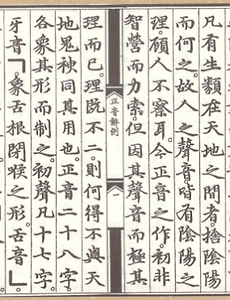 凡有生類在天地之間者捨陰陽
而何之。故人之聲音皆有陰陽之
理。顧人不察耳。今正音之作。初非
智營而力索。但因其聲音而極其
正音解例 一
理而已。理既不二。則何得不與天
地鬼神同其用也。正音二十八字。
各象其形而制之。初聲凡十七字。
牙音ㄱ。象舌根閉喉之形。舌音ㄴ。